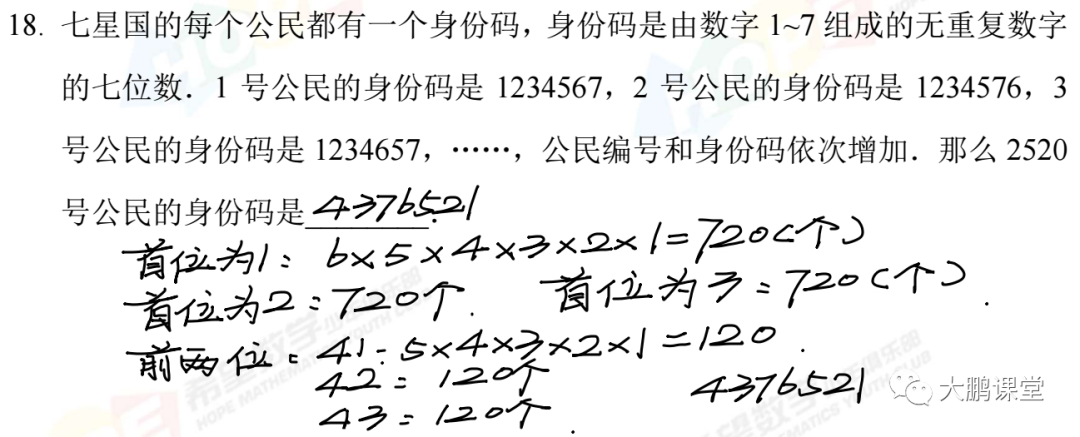 18. 七星国的每个公民都有一个身份码，身份码是由数字 1~7 组成的无重复数字
的七位数．1 号公民的身份码是 1234567，2 号公民的身份码是 1234576，3
号公民的身份码是 1234657，……，公民编号和身份码依次增加．那么 2520
号公民的身份码是 4376521 .
首位为1：6×5×4×3×2×1=720(个)
首位为2：720个. 首位为3：720(个).
前两位：41：5×4×3×2×1=120.
42：120个
43：120个.
4376521
大鹏课堂